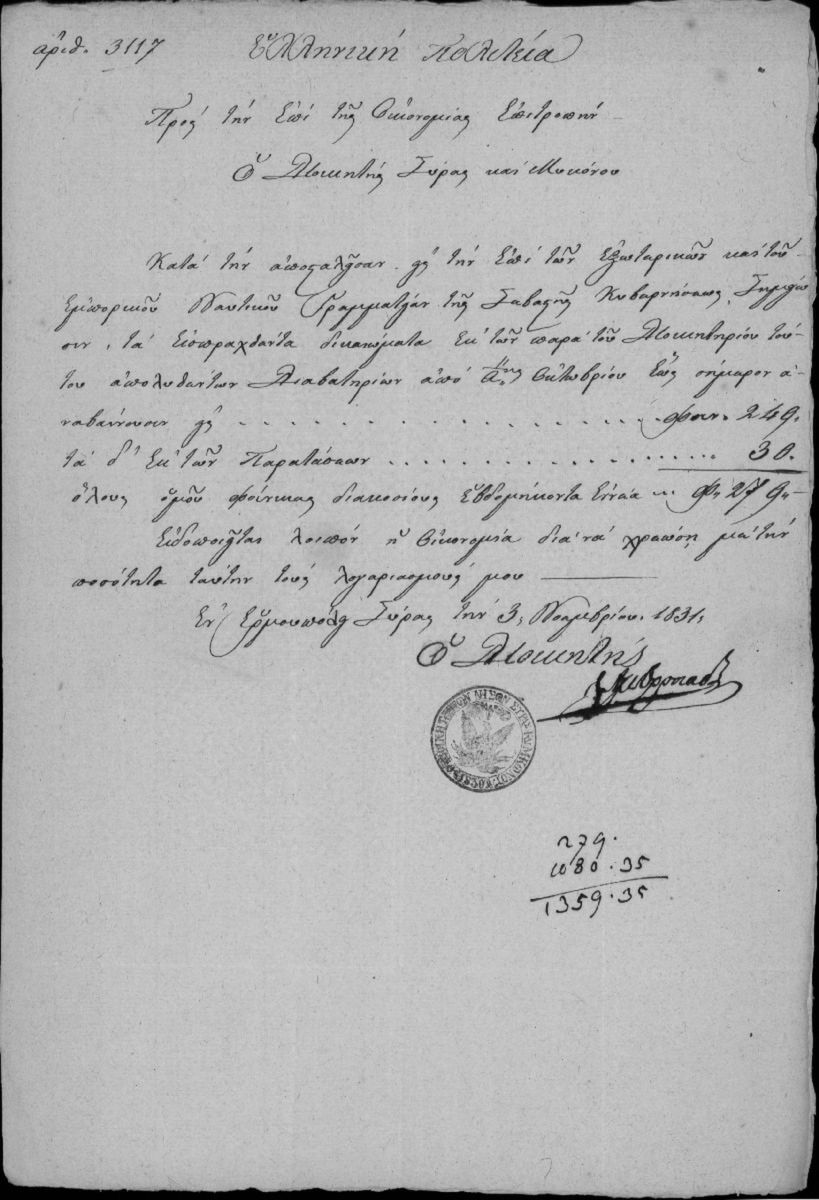 ἀριθ. 3117 Ἑλληνική Πολιτεία
Πρός τήν Ἐπί τῆς Οἰκονομίας Ἐπιτροπήν
Ὁ Διοικητής Σύρας καί Μυκόνου
Κατά τήν ἀποσταλεῖσαν εἰς τήν Ἐπί τῶν Ἐξωτερικῶν καί τοῦ
Ἐμπορικοῦ Ναυτικοῦ Γραμματείαν τῆς Σεβαστῆς Κυβερνήσεως, Σημείω
σιν, τά εἰσπραχθέντα δικαιώματα ἐκ τῶν παρά τοῦ Διοικητηρίου τού-
του ἀπολυθέντων Διαβατηρίων ἀπό Ὀκτωβρίου ἕως σήμερον ἀ-
ναβαίνουσιν εἰς . . . . . . . . . . φοιν. 249.
τά δ' ἐκ τῶν Παρατάσεων . . . . . . . . . . 30.
ὅλους ὁμοῦ φοίνικας διακοσίους ἑβδομήκοντα ἐννέα φ. 279.
Εἰδοποιεῖται λοιπόν ἡ Οἰκονομία διά νά χρεώσῃ μέ τήν
ποσότητα ταύτην τούς λογαριασμούς μου
Ἐν Ἑρμουπόλει Σύρας τήν 3, Νοεμβρίου. 1831,
Ὁ Διοικητής
279.
1080.35
1359.35